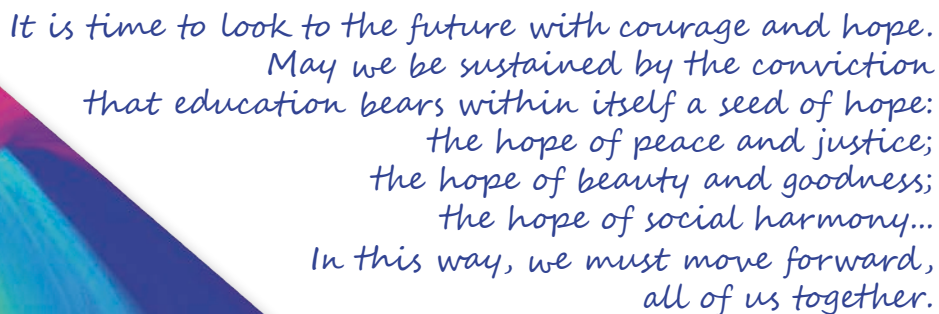 It is time to look to the future with courage and hope.
May we be sustained by the conviction
that education bears within itself a seed of hope:
the hope of peace and justice;
the hope of beauty and goodness;
the hope of social harmony...
In this way, we must move forward,
all of us together.